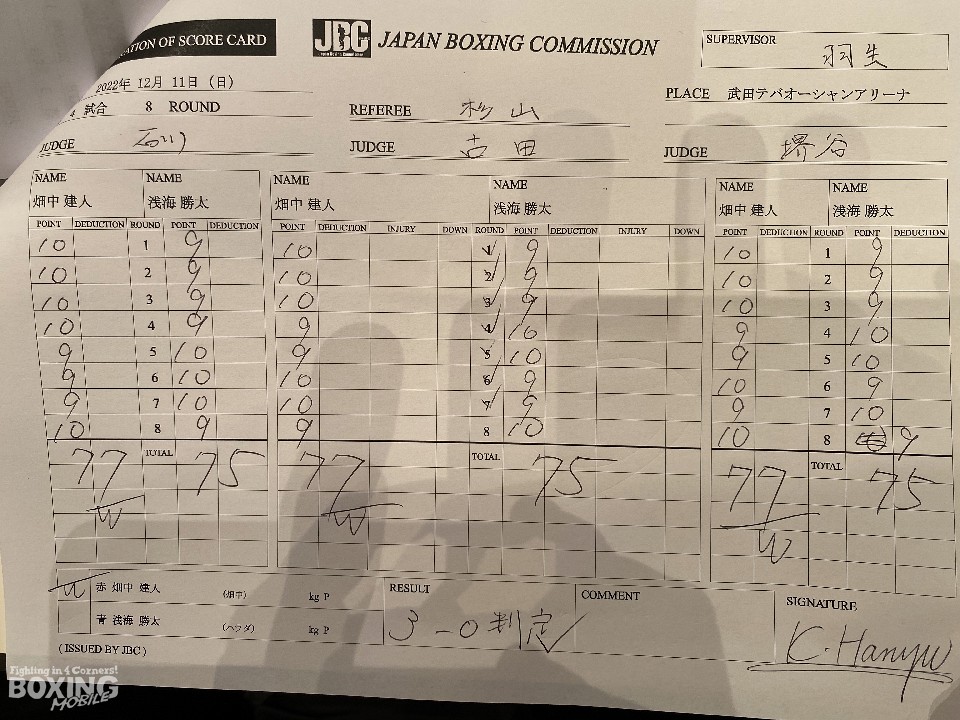 ATION OF SCORE CARD
JBC JAPAN BOXING COMMISSION
SUPERVISOR 羽生
2022年 12月 11日 (日)
PLACE 武田テバオーシャンアリーナ
4 試合 8 ROUND
REFEREE 杉山
JUDGE 石川
JUDGE 古田
JUDGE 堺谷
NAME NAME NAME NAME NAME NAME
畑中 建人 浅海 勝太 畑中 建人 浅海 勝太 畑中 建人 浅海 勝太
POINT DEDUCTION ROUND POINT DEDUCTION POINT DEDUCTION INJURY DOWN ROUND POINT DEDUCTION INJURY DOWN POINT DEDUCTION ROUND POINT DEDUCTION
10 1 9 10 1 9 10 1 9
10 2 9 10 2 9 10 2 9
10 3 9 10 3 9 10 3 9
10 4 9 9 4 10 9 4 10
9 5 10 9 5 10 9 5 10
9 6 10 10 6 9 10 6 9
9 7 10 10 7 9 9 7 10
10 8 9 9 8 10 10 8 9
77 TOTAL 75 77 TOTAL 75 77 TOTAL 75
W W W
W 赤 畑中 建人 (畑中) kg P
青 浅海 勝太 (ハラダ) kg P
RESULT
3-0 判定
COMMENT
SIGNATURE
K. Hanyu
(ISSUED BY JBC)
Fighting in 4 Corners!
BOXING
MOBILE